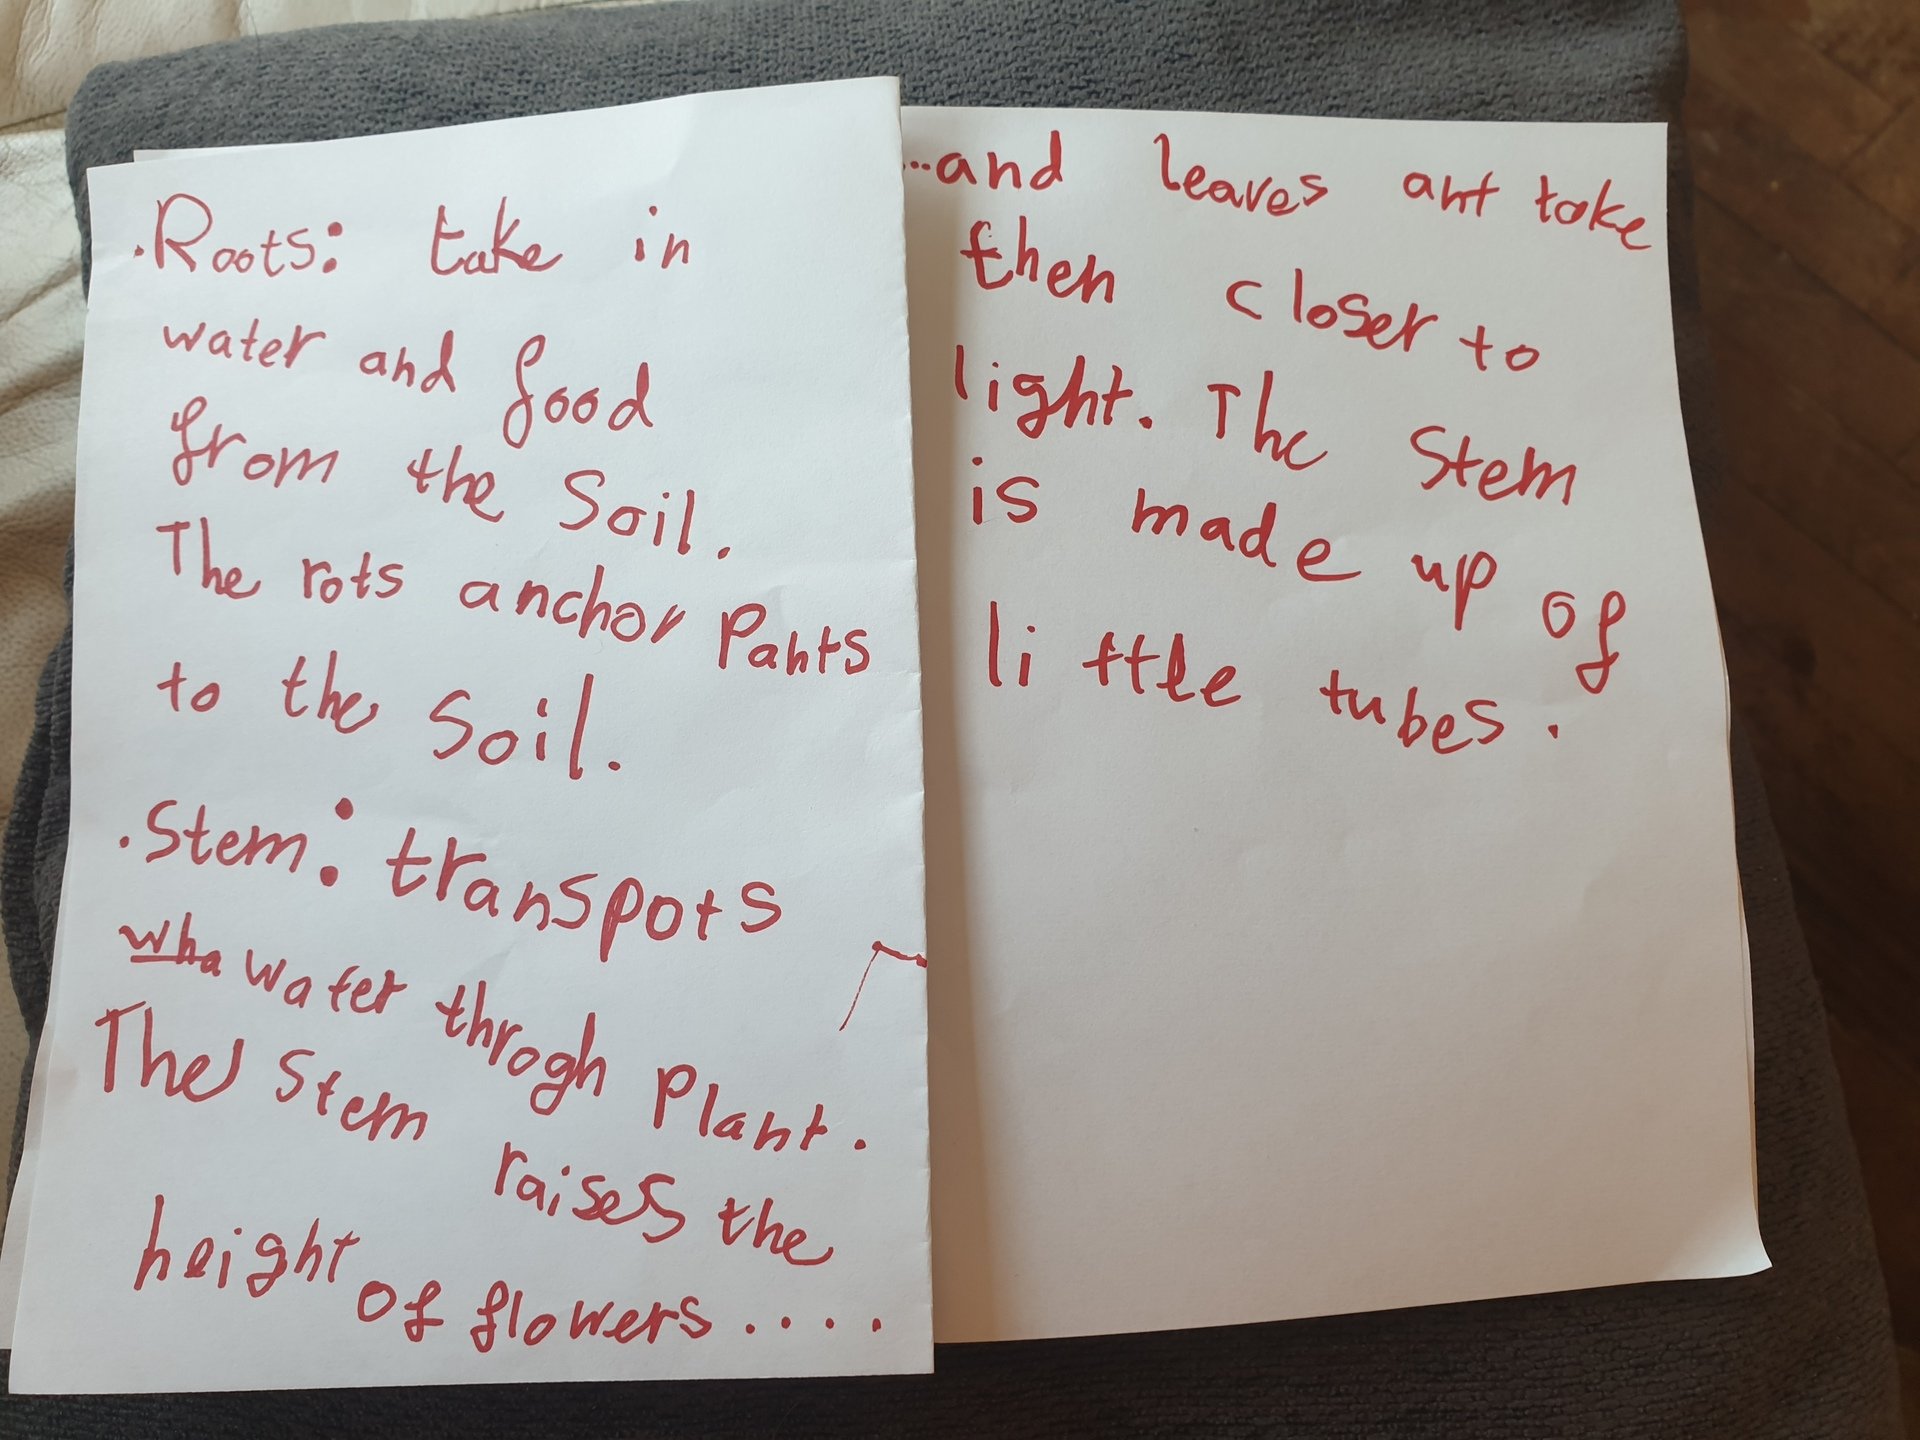 .Roots: take in
water and food
from the Soil.
The rots anchor Pahts
to the Soil.
.Stem: transpots
wha water throgh Plant.
The Stem raises the
height of flowers....
...and leaves ant take
then closer to
light. The Stem
is made up of
little tubes.